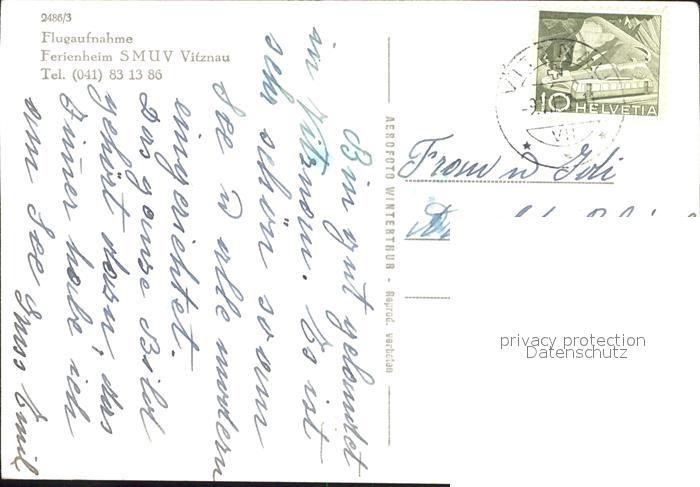 2486/3
Flugaufnahme
Ferienheim SMUV Vitznau
Tel. (041) 83 13 86
Bin gut gelandet
in Vitznau. Es ist
sehr schön so am
See u alle modern
eingerichtet.
Das ganze Bild
gehört dazu, das
Zimmer habe ich
am See Gruss Emil
AEROFOTO WINTERTHUR - Reprod. verboten
10 HELVETIA
VITZNAU
VII
Fram u
privacy protection
Datenschutz